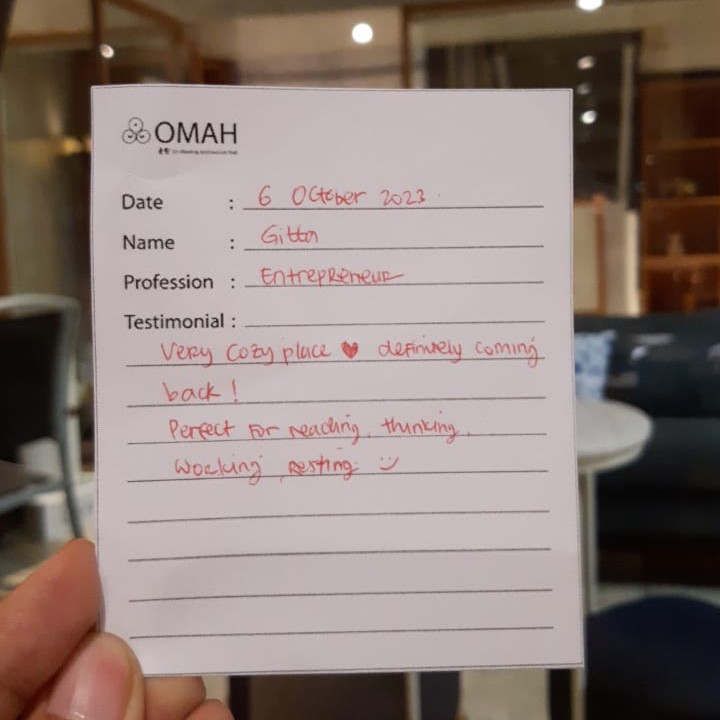 OMAH
Date : 6 October 2023
Name : Gitta
Profession : Entrepreneur
Testimonial :
Very Cozy place ♥ definitely coming
back!
Perfect for reading, thinking,
Working, resting :)